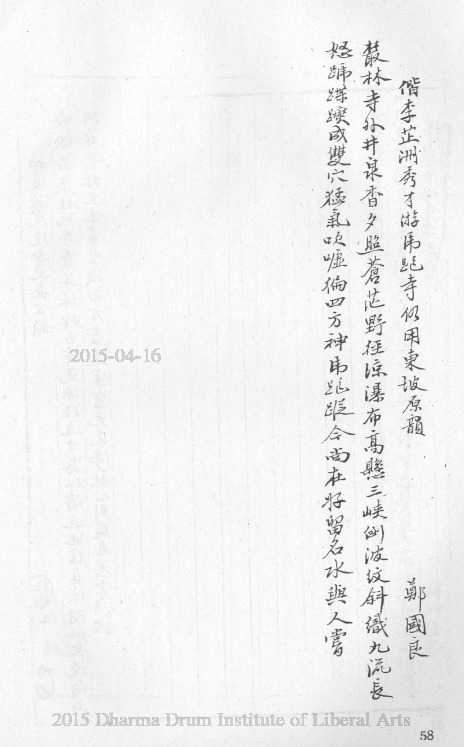 偕李芷洲秀才游虎跑寺仍用東坡原韻
鄭國良
叢林寺外井泉香夕照蒼茫野徑涼瀑布高懸三峽倒波紋斜織九流長
怒蹄蹂躪成雙穴猛氣吹噓徧四方神虎跑蹤今尚在好留名水與人嘗
2015-04-16
2015 Dharma Drum Institute of Liberal Arts
58